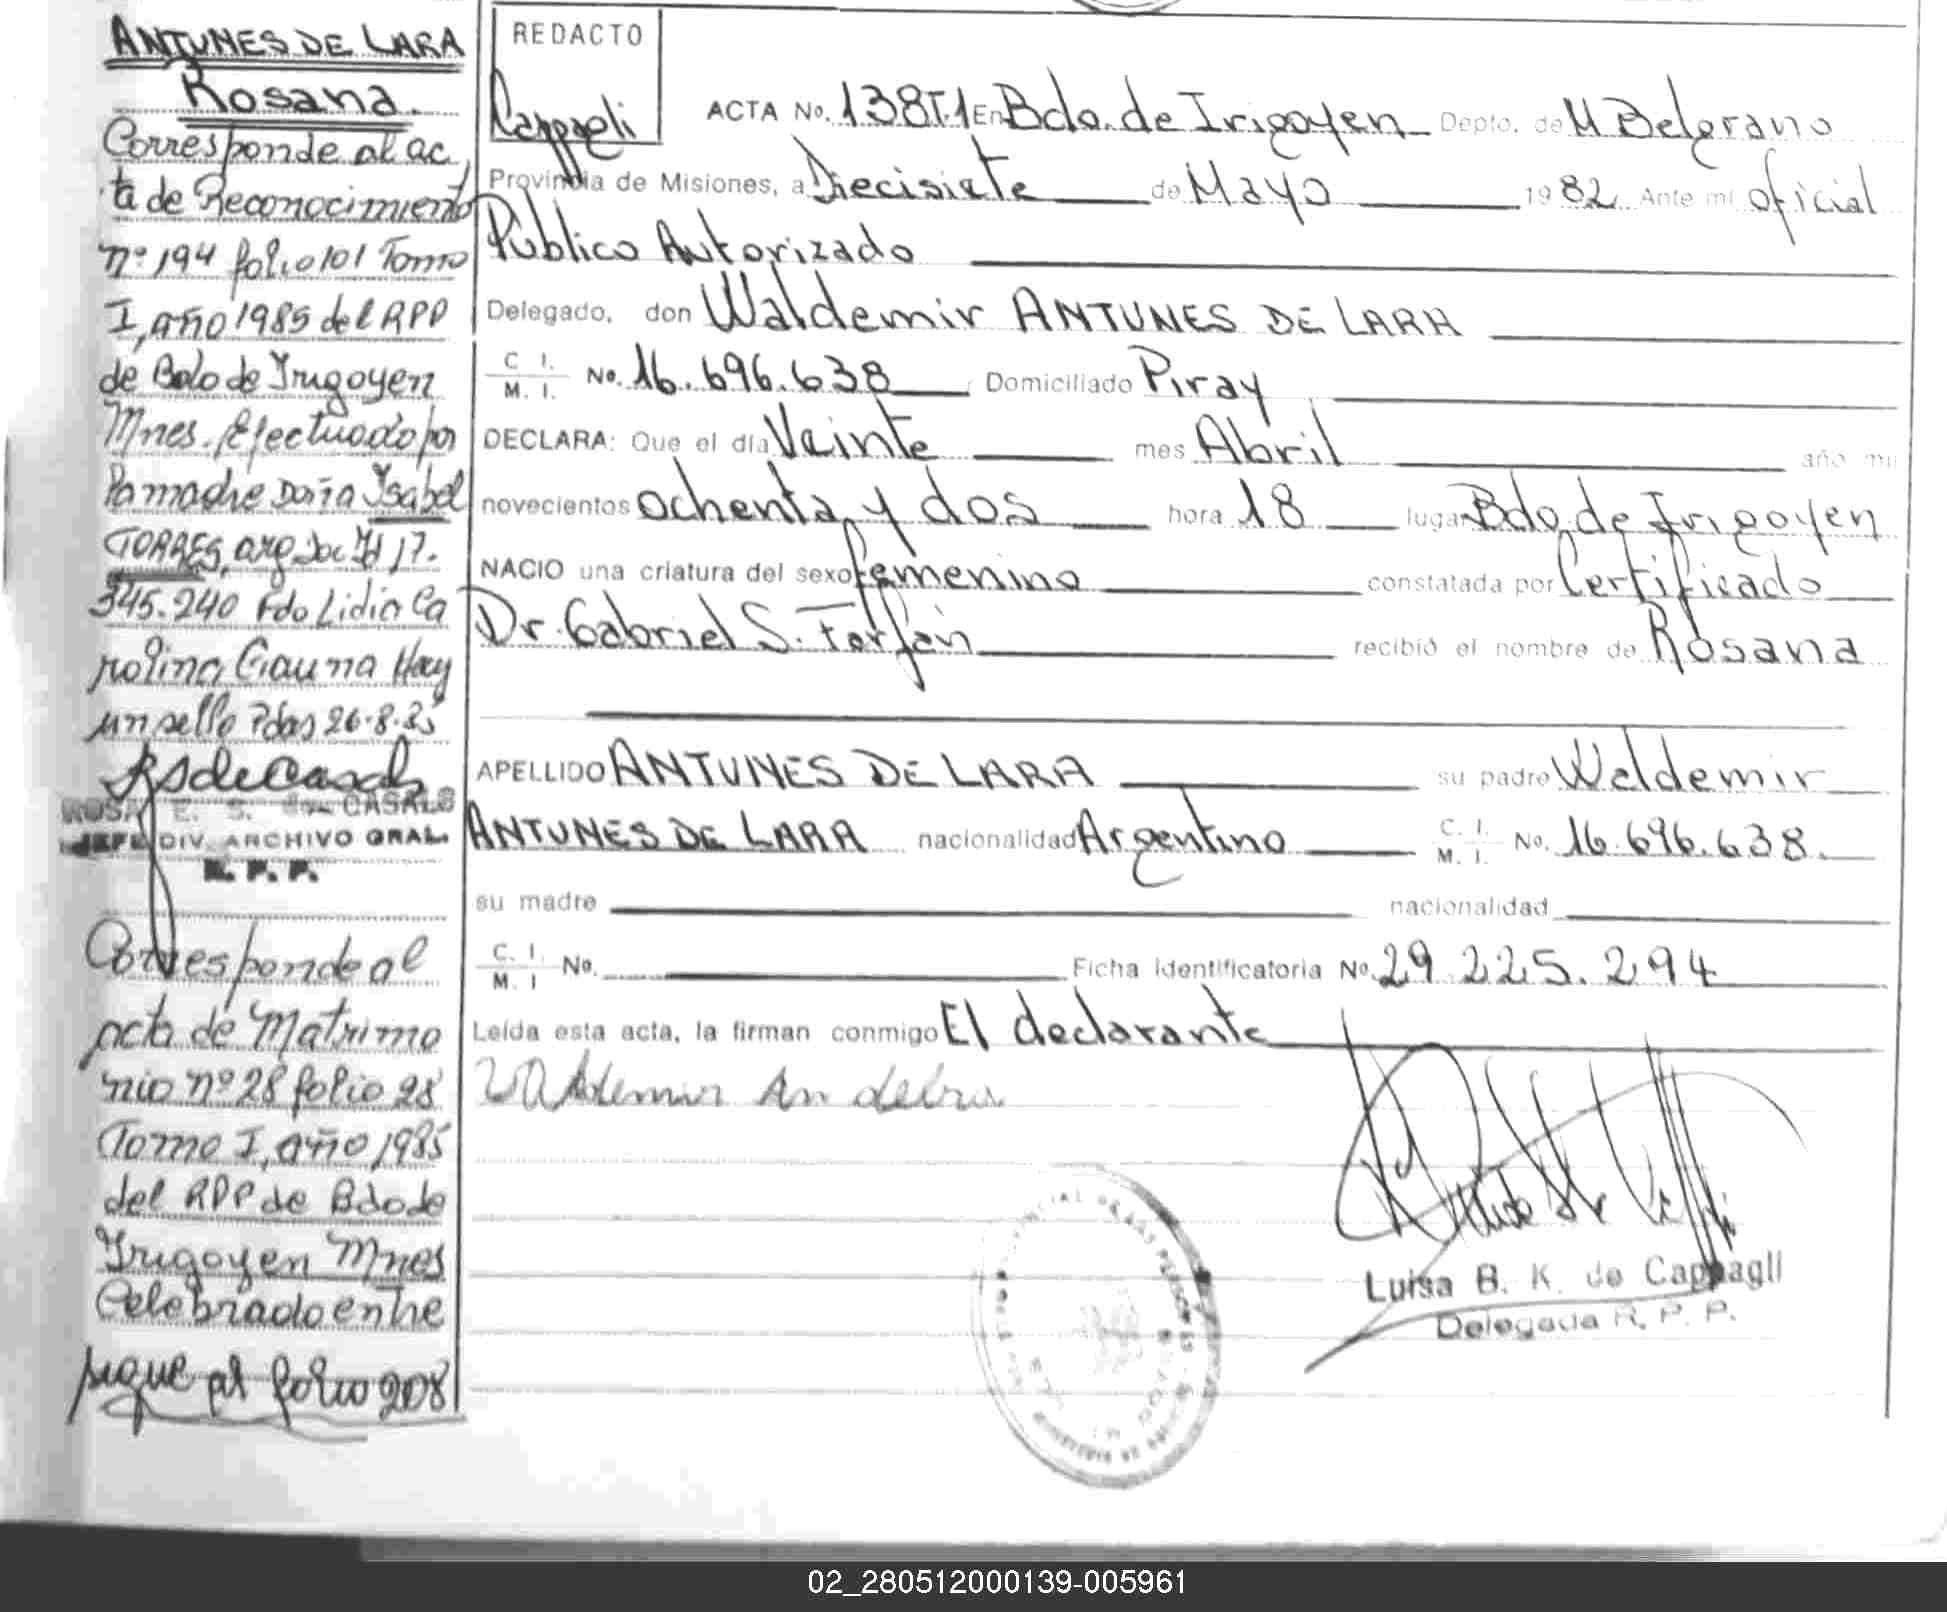 ANTUNES DE LARA
Rosana.
Corresponde al ac
ta de Reconocimiento
nº 194 folio 101 Tomo
I, año 1985 del RPP
de Bdo de Irigoyen
Mnes. Efectuado por
la madre Doña Ysabel
TORRES, arg Doc Id 17.
345.240 Fdo Lidia Ca
rolina Gauna Hay
un sello Pdas 26-8-85
ROSA E. S. de CASALS
JEFE DIV. ARCHIVO GRAL.
R. P. P.
Corresponde al
acta de Matrimo
nio nº 28 folio 28
Tomo I, año 1985
del RPP de Bdo de
Irigoyen Mnes
Celebrado entre
sigue al folio 208
REDACTO
Cappagli
ACTA No. 138T.1 En Bdo. de Irigoyen Depto. de M Belgrano
Provincia de Misiones, a Diecisiete de Mayo 1982 Ante mi oficial
Público Autorizado
Delegado, don Waldemir ANTUNES DE LARA
C. I.
M. I. No. 16.696.638 Domiciliado Piray
DECLARA: Que el día Veinte mes Abril año mil
novecientos ochenta y dos hora 18 lugar Bdo. de Irigoyen
NACIO una criatura del sexo femenino constatada por Certificado
Dr. Gabriel S. Farfán recibió el nombre de Rosana
APELLIDO ANTUNES DE LARA su padre Waldemir
ANTUNES DE LARA nacionalidad Argentino C. I. M. I. No. 16.696.638.
su madre nacionalidad
C. I.
M. I No. Ficha identificatoria No. 29.225.294
Leída esta acta, la firman conmigo El declarante
Luisa B. K. de Cappagli
Delegada R. P. P.
02_280512000139-005961